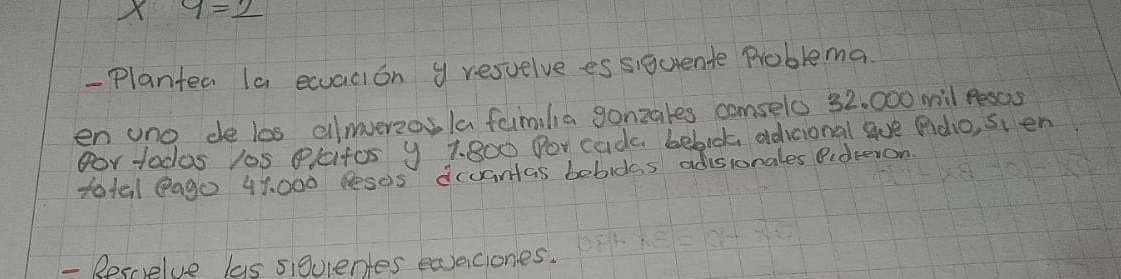 x 9=2
-Plantea la ecuación y resuelve es siguiente Problema.
en uno de los almuerzos la familia gonzales canselo 32.000 mil Pesos
Por todos los Platos y 1.800 Por cada bebida adicional que Pidio, si en
total Pago 41.000 Pesos dcuantas bebidas adisionales Pidieron.
- Resuelve las siguientes ecuaciones.